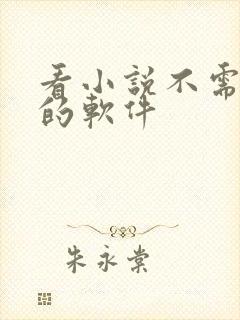 看小説不需
的軟件
朱永棠